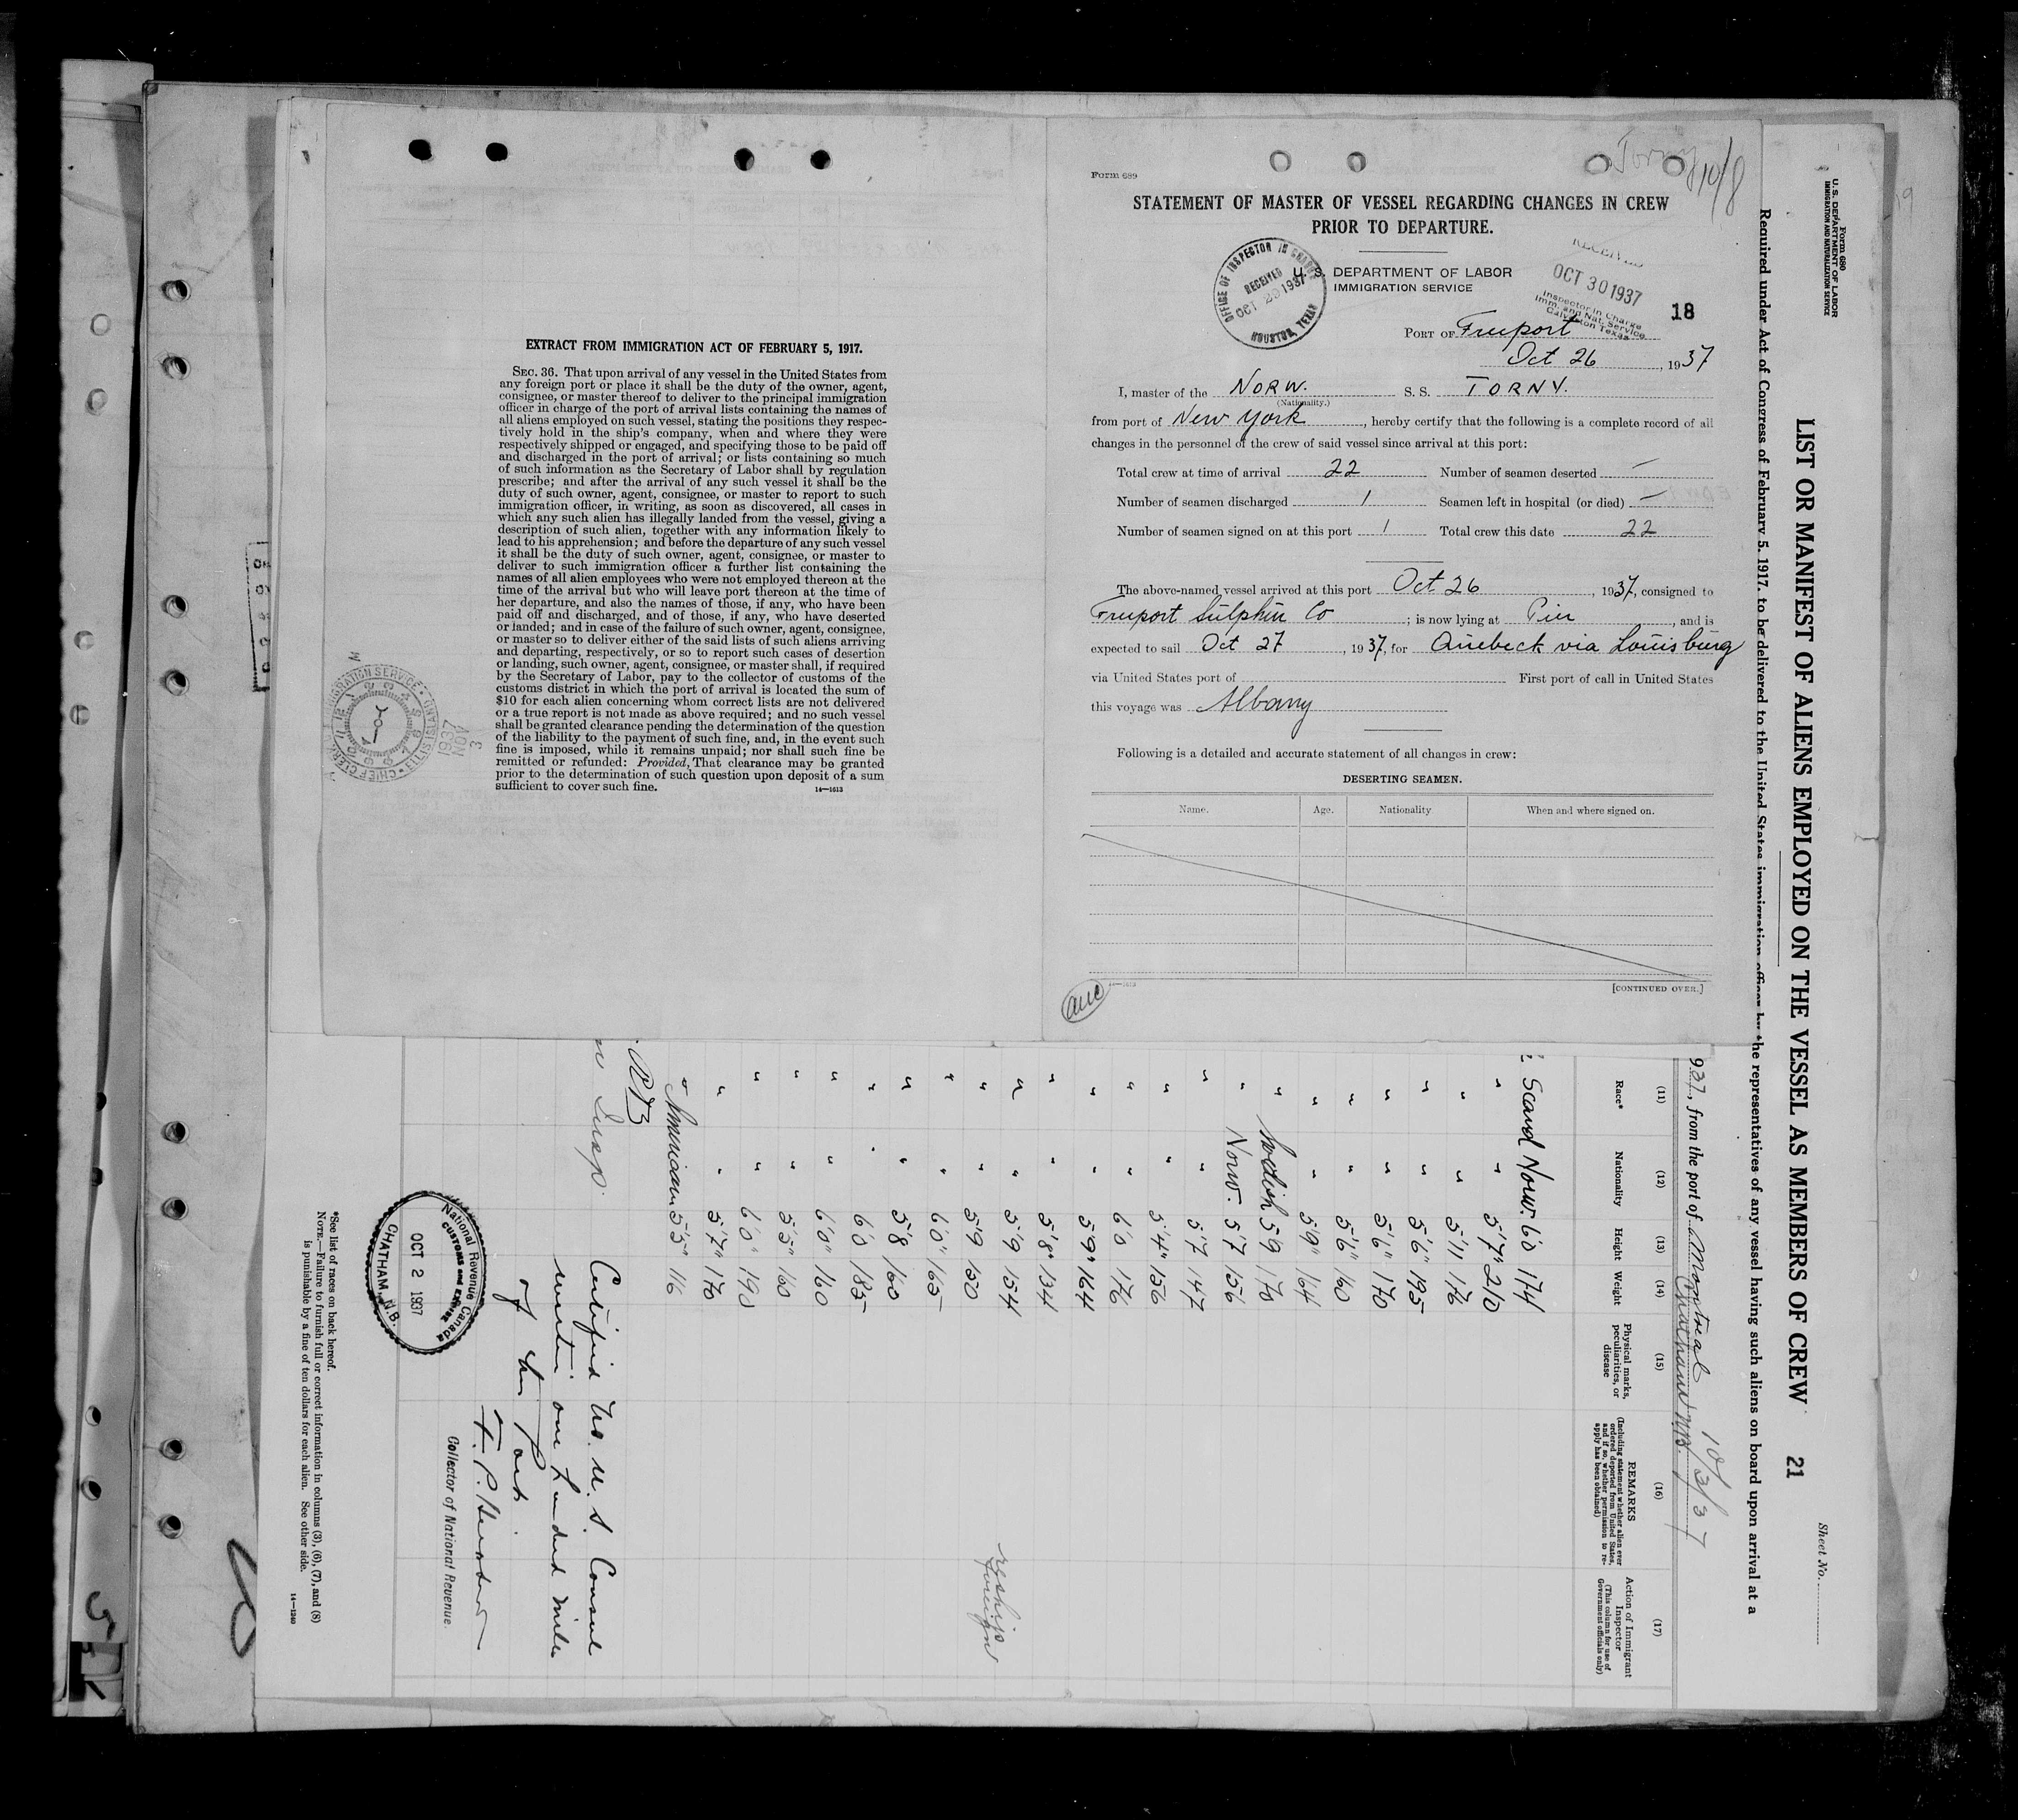 EXTRACT FROM IMMIGRATION ACT OF FEBRUARY 5, 1917.
SEC. 36. That upon arrival of any vessel in the United States from
any foreign port or place it shall be the duty of the owner, agent,
consignee, or master thereof to deliver to the principal immigration
officer in charge of the port of arrival lists containing the names of
all aliens employed on such vessel, stating the positions they respec-
tively hold in the ship's company, when and where they were
respectively shipped or engaged, and specifying those to be paid off
and discharged in the port of arrival; or lists containing so much
of such information as the Secretary of Labor shall by regulation
prescribe; and after the arrival of any such vessel it shall be the
duty of such owner, agent, consignee, or master to report to such
immigration officer, in writing, as soon as discovered, all cases in
which any such alien has illegally landed from the vessel, giving a
description of such alien, together with any information likely to
lead to his apprehension; and before the departure of any such vessel
it shall be the duty of such owner, agent, consignee, or master to
deliver to such immigration officer a further list containing the
names of all alien employees who were not employed thereon at the
time of the arrival but who will leave port thereon at the time of
her departure, and also the names of those, if any, who have been
paid off and discharged, and of those, if any, who have deserted
or landed; and in case of the failure of such owner, agent, consignee,
or master so to deliver either of the said lists of such aliens arriving
and departing, respectively, or so to report such cases of desertion
or landing, such owner, agent, consignee, or master shall, if required
by the Secretary of Labor, pay to the collector of customs of the
customs district in which the port of arrival is located the sum of
$10 for each alien concerning whom correct lists are not delivered
or a true report is not made as above required; and no such vessel
shall be granted clearance pending the determination of the question
of the liability to the payment of such fine, and, in the event such
fine is imposed, while it remains unpaid; nor shall such fine be
remitted or refunded: Provided, That clearance may be granted
prior to the determination of such question upon deposit of a sum
sufficient to cover such fine.
14—1613
Form 689
10/8
STATEMENT OF MASTER OF VESSEL REGARDING CHANGES IN CREW
PRIOR TO DEPARTURE.
U. S. DEPARTMENT OF LABOR
IMMIGRATION SERVICE
OFFICE OF INSPECTOR IN CHARGE
RECEIVED
OCT 29 1937
HOUSTON, TEXAS
RECEIVED
OCT 30 1937
Inspector in Charge
Imm. and Nat. Service
Galveston Texas
18
PORT OF Freeport
Oct 26, 1937
I, master of the NORW. S. S. TORNY.
(Nationality.)
from port of New York, hereby certify that the following is a complete record of all
changes in the personnel of the crew of said vessel since arrival at this port:
Total crew at time of arrival 22 Number of seamen deserted —
Number of seamen discharged 1 Seamen left in hospital (or died) —
Number of seamen signed on at this port 1 Total crew this date 22
The above-named vessel arrived at this port Oct 26, 1937, consigned to
Freeport Sulphur Co; is now lying at Pier, and is
expected to sail Oct 27, 1937, for Quebeck via Louisburg
via United States port of First port of call in United States
this voyage was Albany
Following is a detailed and accurate statement of all changes in crew:
DESERTING SEAMEN.
Name. Age. Nationality When and where signed on.
14—1613
[CONTINUED OVER.]
Form 680
U. S. DEPARTMENT OF LABOR
IMMIGRATION AND NATURALIZATION SERVICE
Sheet No.
LIST OR MANIFEST OF ALIENS EMPLOYED ON THE VESSEL AS MEMBERS OF CREW 21
Required under Act of Congress of February 5, 1917, to be delivered to the United States immigration officer by the representatives of any vessel having such aliens on board upon arrival at a
937, from the port of Montreal 10/3/37
Chatham N.B.
(11) (12) (13) (14) (15) (16) (17)
Race* Nationality Height Weight Physical marks, peculiarities, or disease REMARKS (Including statement whether alien ever ordered deported from United States, and if so, whether permission to re-apply has been obtained) Action of Immigrant Inspector (This column for use of Government officials only)
Scand Norw. 6'0 174
" " 5'7" 210
" " 5'11 176
" " 5'6" 195
" " 5'6" 170
" " 5'6" 160
" " 5'9" 164
" Swedish 5'9 170
" Norw. 5'7 156
" " 5'7 147
" " 5'4" 156
" " 6'0 176
" " 5'9" 164
" " 5'8" 134
" " 5'9 154
" " 5'9 150 reship foreign
" " 6'0" 165
" " 5'8 160
" " 6'0 185
" " 6'0" 160
" " 5'5" 160
" " 6'0" 190
" " 5'7" 170
" American 5'5" 116
Insp.
Certified No. U. S. Consul
within one hundred miles
of this Port
Collector of National Revenue.
National Revenue Canada
CUSTOMS and EXCISE
OCT 2 1937
CHATHAM, N.B.
*See list of races on back hereof.
NOTE.—Failure to furnish full or correct information in columns (3), (6), (7), and (8)
is punishable by a fine of ten dollars for each alien. See other side.
14—1240
IMMIGRATION SERVICE
ELLIS ISLAND
CHIEF CLERK
1937
NOV
3